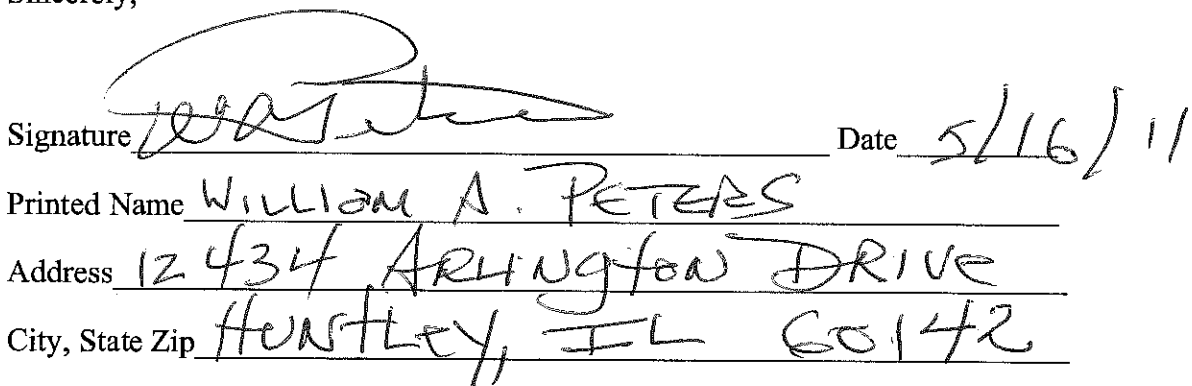 Sincerely,
Signature Date 5/16/11
Printed Name WILLIAM A. PETERS
Address 12434 ARLINGTON DRIVE
City, State Zip HUNTLEY, IL 60142